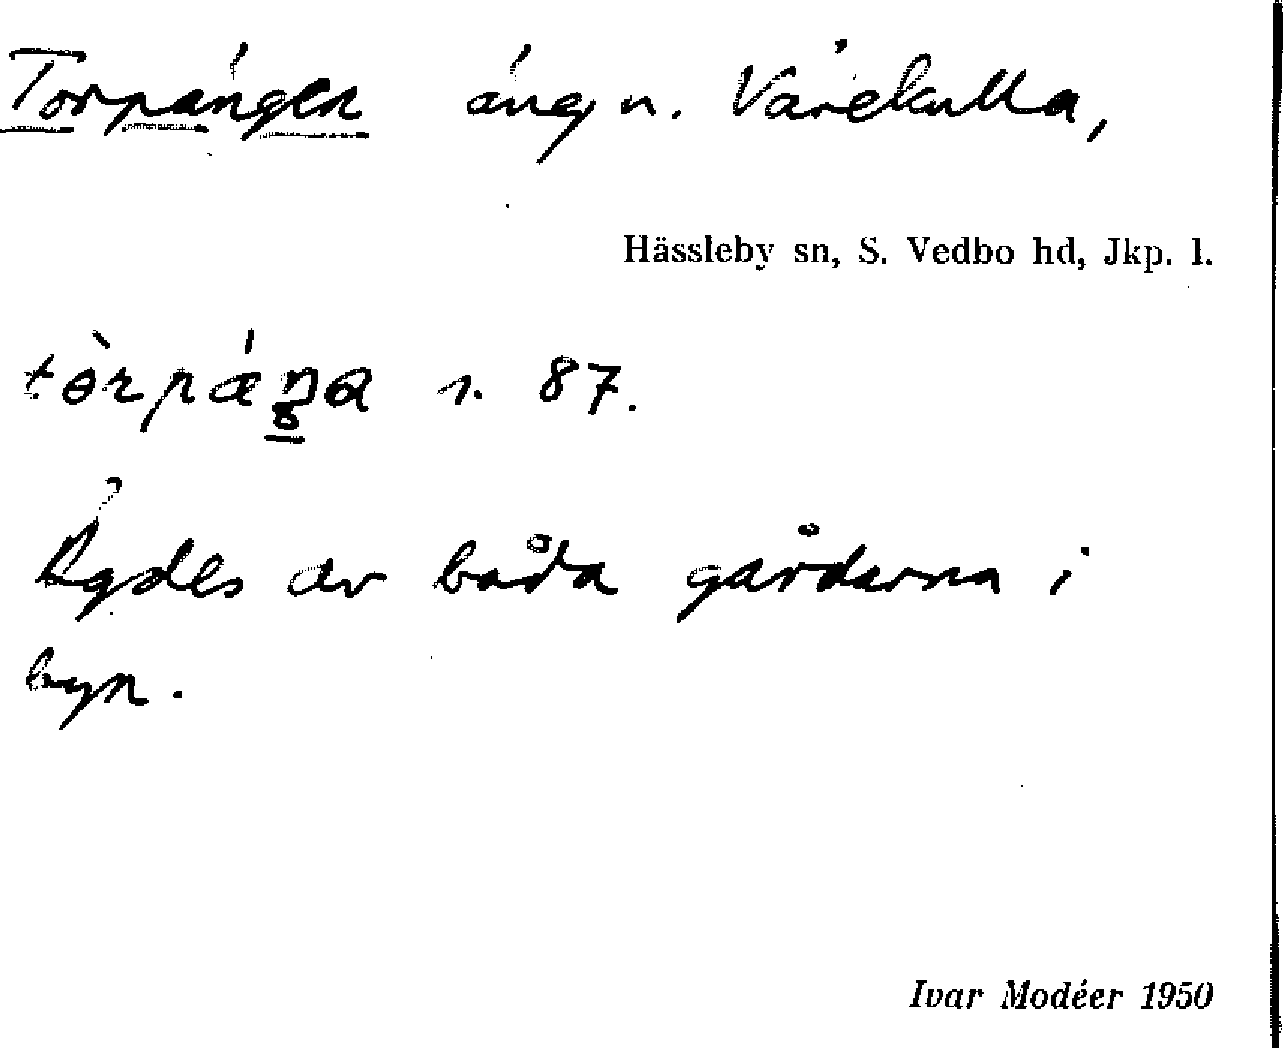 Torpängen äng n. Vårekulla,
Hässleby sn, S. Vedbo hd, Jkp. l.
s. 87.
Ägdes av båda gårdarna i
byn.
Ivar Modéer 1950